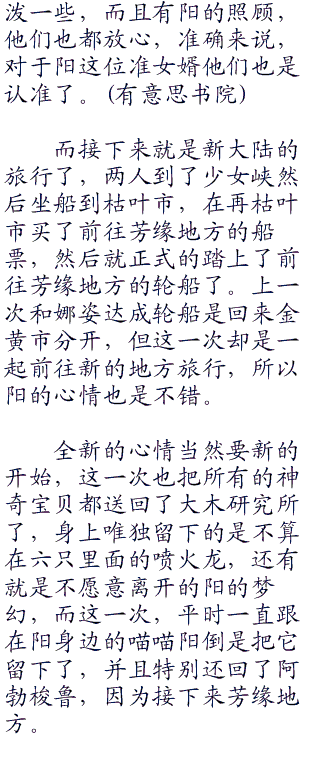 泼一些，而且有阳的照顾，
他们也都放心，准确来说，
对于阳这位准女婿他们也是
认准了。(有意思书院)
而接下来就是新大陆的
旅行了，两人到了少女峡然
后坐船到枯叶市，在再枯叶
市买了前往芳缘地方的船
票，然后就正式的踏上了前
往芳缘地方的轮船了。上一
次和娜姿达成轮船是回来金
黄市分开，但这一次却是一
起前往新的地方旅行，所以
阳的心情也是不错。
全新的心情当然要新的
开始，这一次也把所有的神
奇宝贝都送回了大木研究所
了，身上唯独留下的是不算
在六只里面的喷火龙，还有
就是不愿意离开的阳的梦
幻，而这一次，平时一直跟
在阳身边的喵喵阳倒是把它
留下了，并且特别还回了阿
勃梭鲁，因为接下来芳缘地
方。